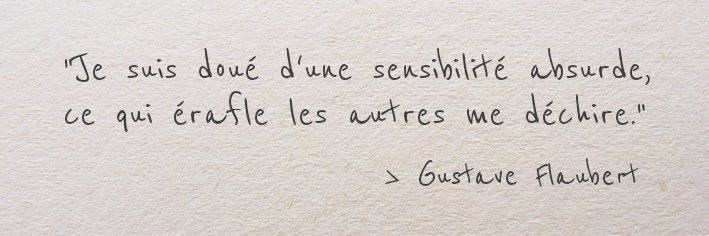 "Je suis doué d'une sensibilité absurde,
ce qui érafle les autres me déchire."
> Gustave Flaubert